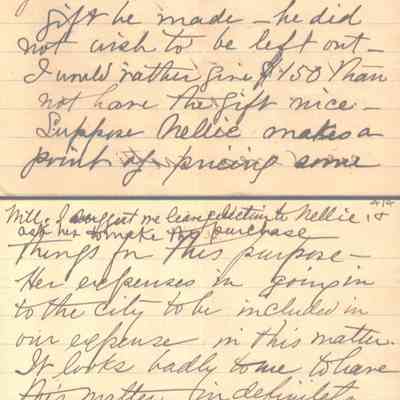 gift be made – he did
not wish to be left out –
I would rather give $450 than
not have the gift nice –
Suppose Nellie makes a
point of pricing some
Mill: I suggest we leave selection to Nellie &
ask her to make the purchase
things for this purpose –
Her expenses in going in
to the city to be included in
our expense in this matter.
It looks badly to me to have
this matter indefinitely